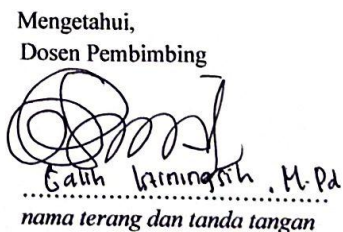 Mengetahui,
Dosen Pembimbing
Galih Istiningsih, M.Pd
nama terang dan tanda tangan